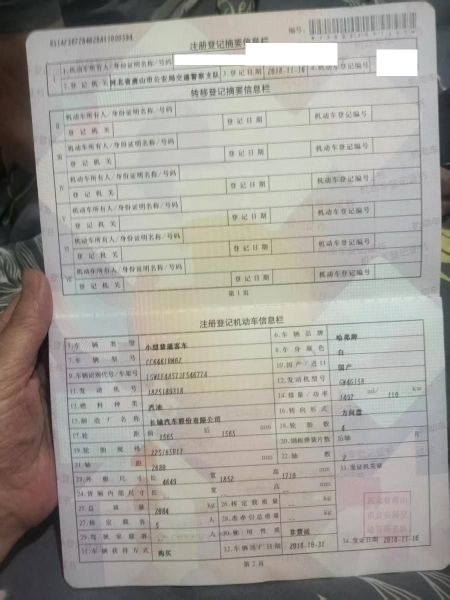 编号:
注册登记摘要信息栏
1.机动车所有人/身份证明名称/号码
2.登记机关 河北省唐山市公安局交通警察支队 3.登记日期 2018-11-16 4.机动车登记编号
转移登记摘要信息栏
机动车所有人/身份证明名称/号码
登记机关 登记日期 机动车登记编号
机动车所有人/身份证明名称/号码
登记机关 登记日期 机动车登记编号
机动车所有人/身份证明名称/号码
登记机关 登记日期 机动车登记编号
机动车所有人/身份证明名称/号码
登记机关 登记日期 机动车登记编号
机动车所有人/身份证明名称/号码
登记机关 登记日期 机动车登记编号
机动车所有人/身份证明名称/号码
登记机关 登记日期 机动车登记编号
第1页
注册登记机动车信息栏
5.车辆类型 小型普通客车 6.车辆品牌 哈弗牌
7.车辆型号 8.车身颜色 白
9.车辆识别代号/车架号 10.国产/进口 国产
11.发动机号 12.发动机型号 GW4G15B
13.燃料种类 汽油 14.排量/功率 1497 ml/ 110 kw
15.制造厂名称 长城汽车股份有限公司 16.转向形式 方向盘
17.轮距 前 1565 后 1565 18.轮胎数 4
19.轮胎规格 225/65R17 20.钢板弹簧片数 后轴
21.轴距 2680 22.轴数 2
23.外廓尺寸 长 4649 宽 1852 高 1710 33.发证机关章
24.货厢内部尺寸 长 宽 高
25.总质量 kg 26.核定载质量 kg
27.核定载客 5 人 28.准牵引总质量 kg
29.驾驶室载客 人 30.使用性质 非营运
31.车辆获得方式 购买 32.车辆出厂日期 2018-10-31 34.发证日期 2018-11-16
第2页